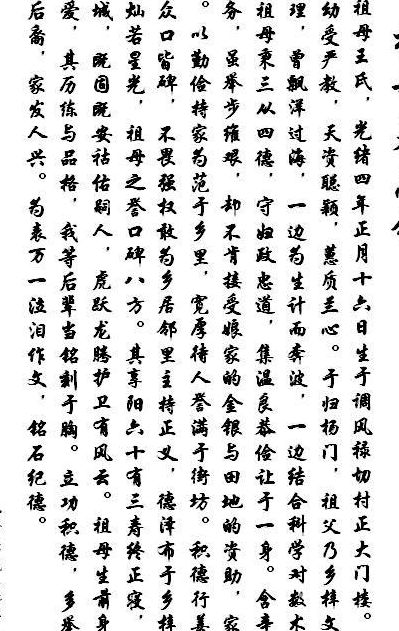 祖母王氏，光绪四年正月十六日生于调风禄切村正大门楼。
幼受严教，天资聪颖，蕙质兰心。于归杨门，祖父乃乡梓文
理，曾飘洋过海，一边为生计而奔波，一边结合科学对数术
祖母秉三从四德，守妇政忠道，集温良恭俭让于一身。含辛
务，虽举步维艰，却不肯接受娘家的金银与田地的资助，家
。以勤俭持家为范于乡里，宽厚待人誉满于街坊。积德行善
众口皆碑，不畏强权敢为乡居邻里主持正义，德泽布于乡梓
灿若星光，祖母之誉口碑八方。其享阳六十有三寿终正寝，
城，既固既安祜佑嗣人，虎跃龙腾护卫有风云。祖母生前身
爱，其历练与品格，我等后辈当铭刻于胸。立功积德，多举
后裔，家发人兴。为表万一泣泪作文，铭石纪德。